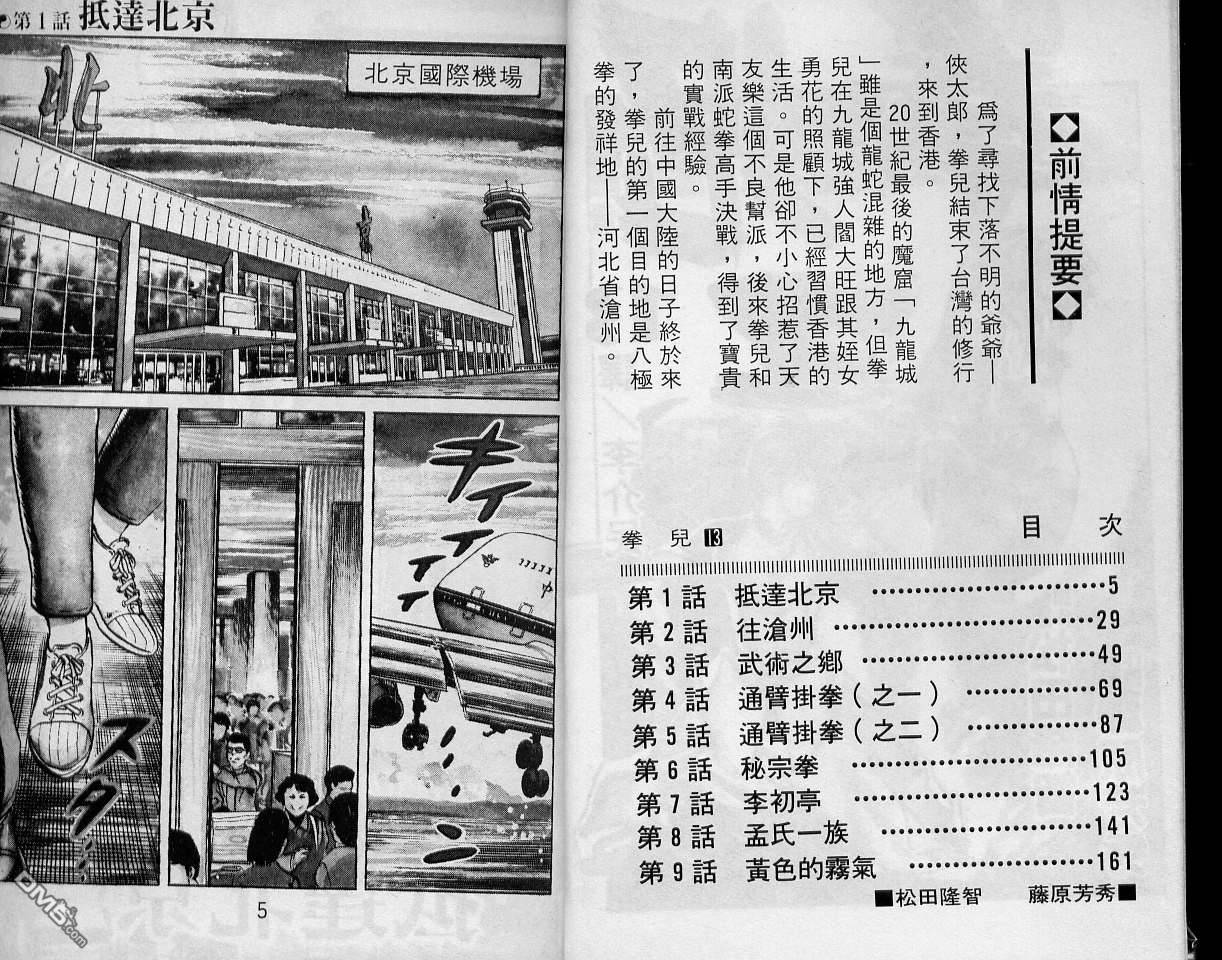 ◆前情提要◆
為了尋找下落不明的爺爺—
俠太郎，拳兒結束了台灣的修行
，來到香港。
20世紀最後的魔窟「九龍城
」雖是個龍蛇混雜的地方，但拳
兒在九龍城強人閻大旺跟其姪女
勇花的照顧下，已經習慣香港的
生活。可是他卻不小心招惹了天
友樂這個不良幫派，後來拳兒和
南派蛇拳高手決戰，得到了寶貴
的實戰經驗。
前往中國大陸的日子終於來
了，拳兒的第一個目的地是八極
拳的發祥地——河北省滄州。
目 次
拳 兒 13
第1話 抵達北京 ……………………………5
第2話 往滄州 ……………………………29
第3話 武術之鄉 ……………………………49
第4話 通臂掛拳（之一） ………………69
第5話 通臂掛拳（之二） ………………87
第6話 秘宗拳 ……………………………105
第7話 李初亭 ……………………………123
第8話 孟氏一族 …………………………141
第9話 黃色的霧氣 ………………………161
■松田隆智 藤原芳秀■
第1話 抵達北京
北京國際機場
北
キイイイイ
中
スタ…
5
DM5